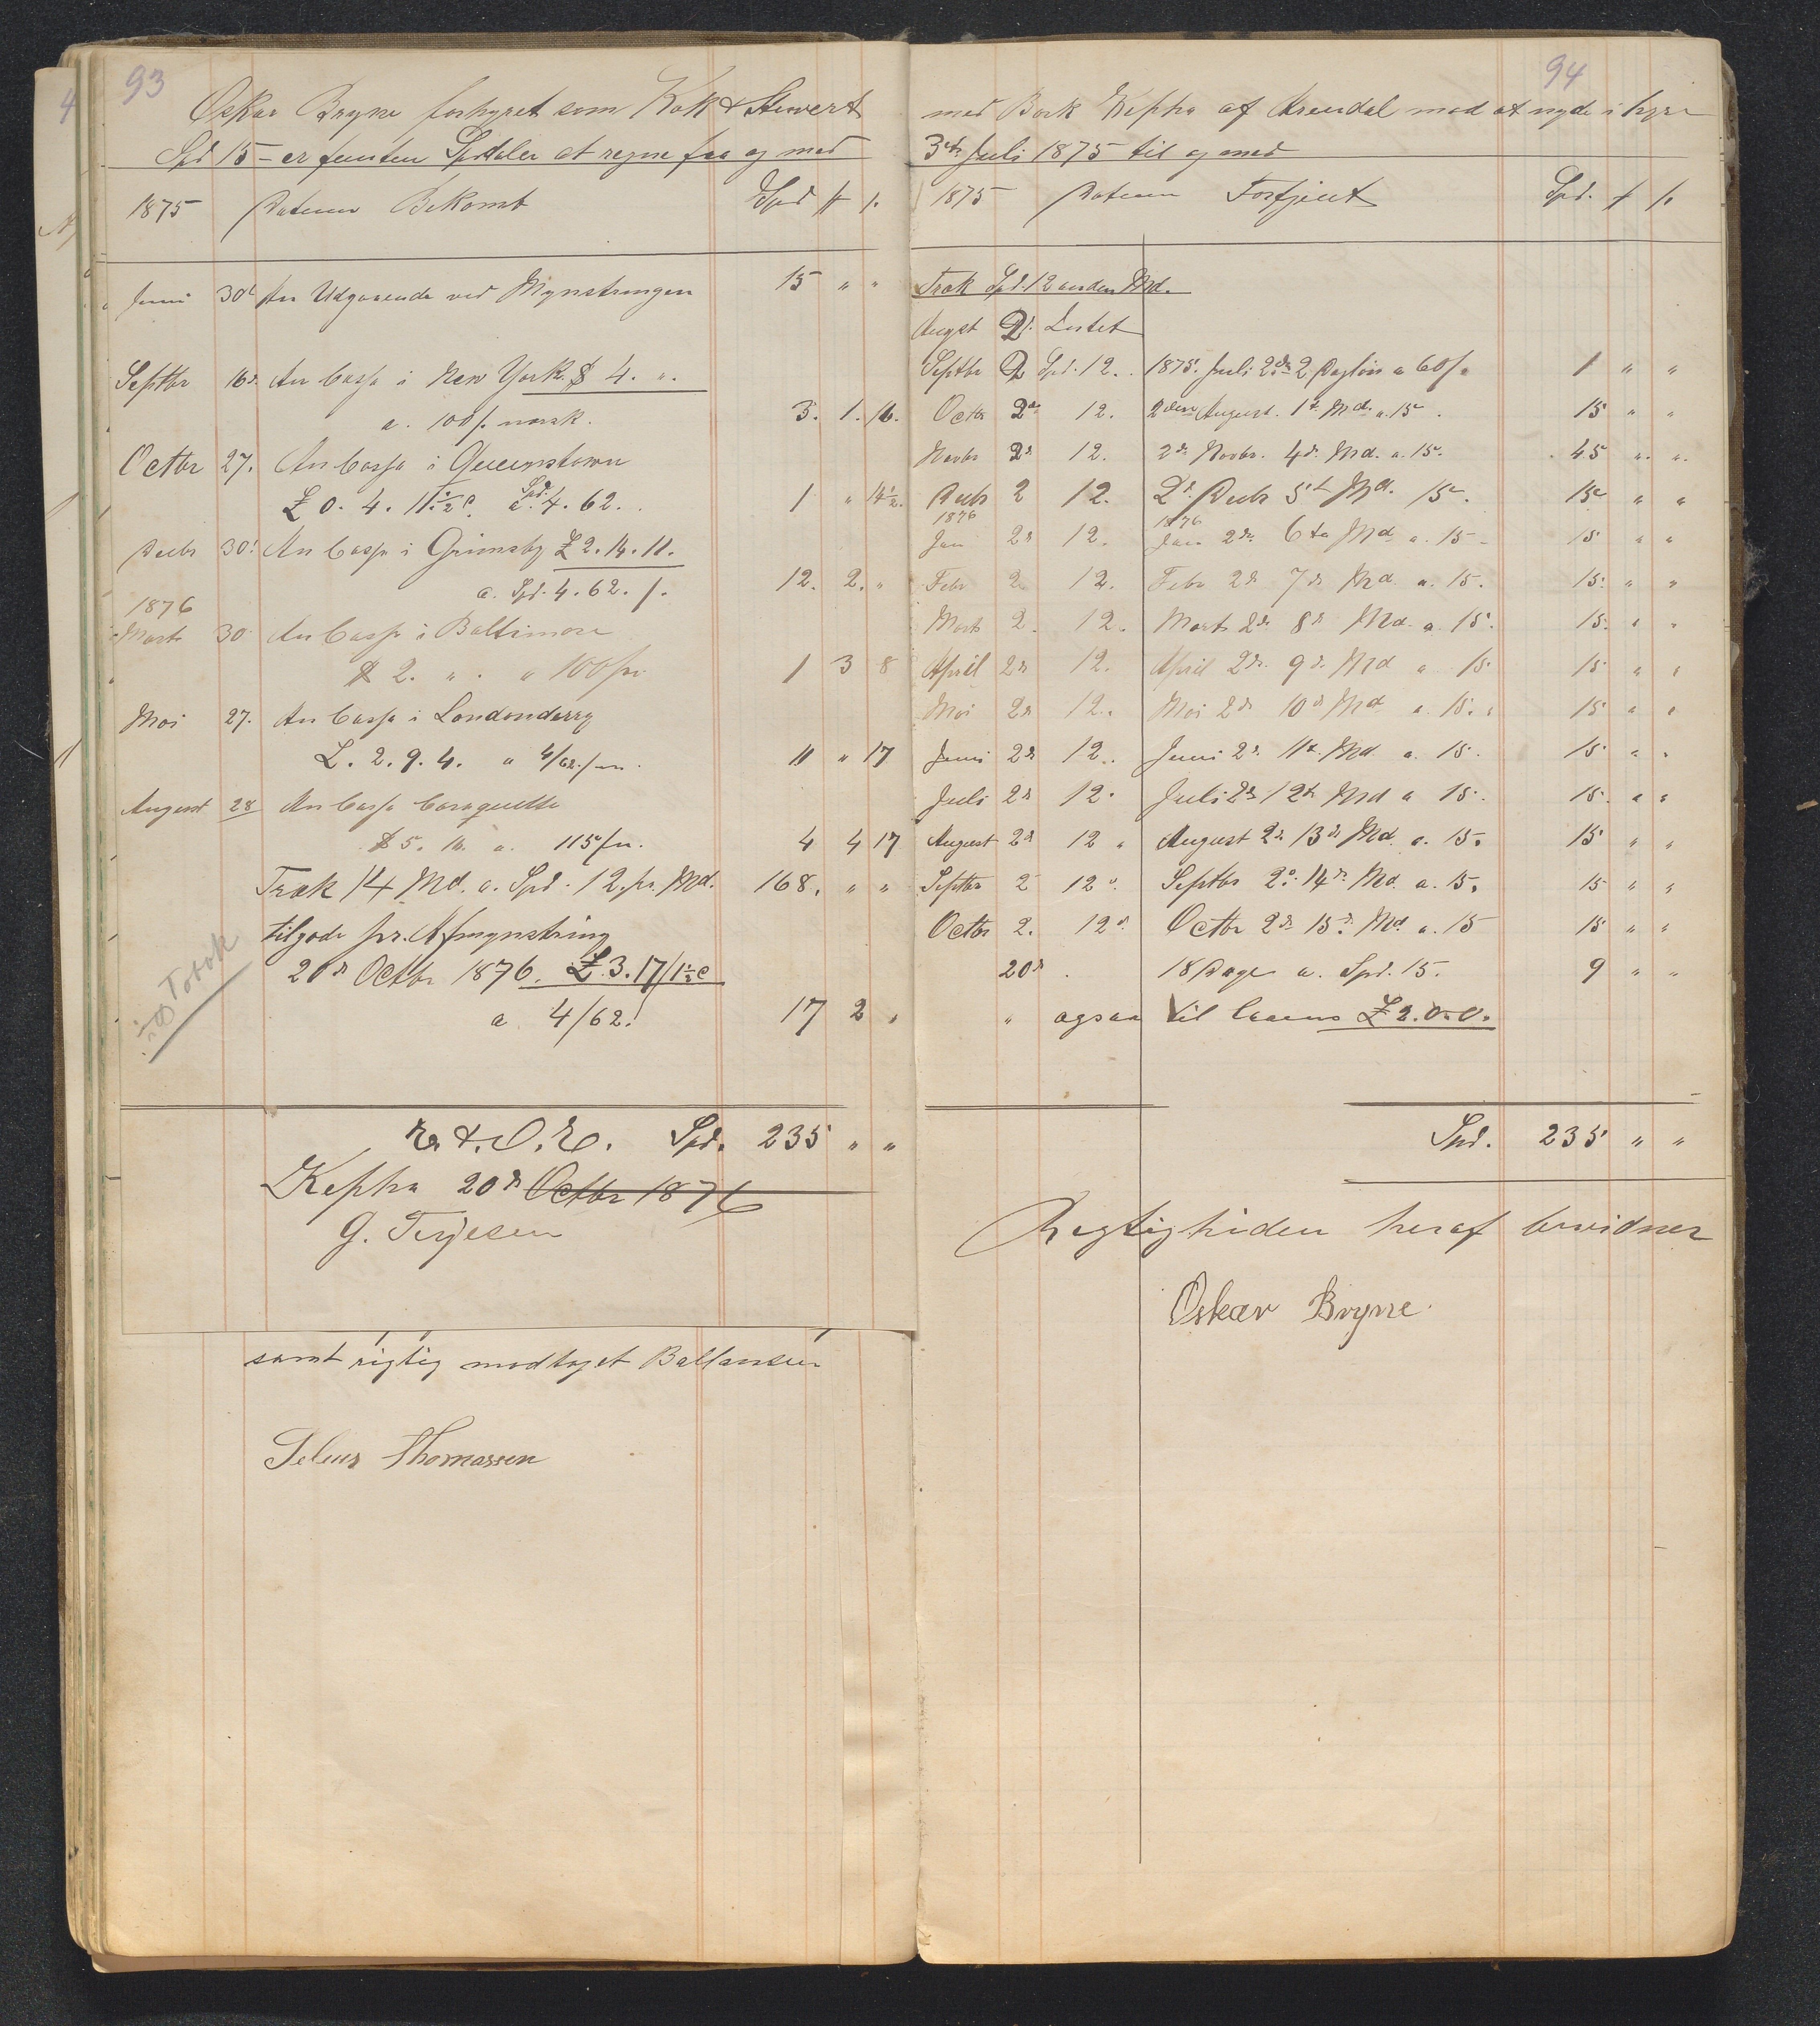 93
Oskar Bryne forhyret som Kok & Stuvert
Spd 15 - er femten Spdaler at regne fra og med
1875 Datum Bekomt Spd # /.
Juni 30te An Udgaaende ved Mynstringen 15 " "
Septbr 16de An Cassa i New York. $ 4. ".
a. 100/. norsk. 3. 1. 16.
Octbr 27. An Cassa i Queenstown
£ 0. 4. 11 1/2 a. Spd. 4. 62. 1 " 14 1/2.
Decbr 30. An Cassa i Grimsby £ 2. 14. 11.
a. Spd. 4. 62. /. 12. 2. "
1876
Marts 30 An Cassa i Baltimore
$ 2. " . a 100/ 1 3 8
Mai 27. An Cassa i Londonderry
£. 2. 9. 4. a 4/62./ 11 " 17
August 28 An Cassa Caraquette
$ 5. a. 115/ 4 4 17
Træk 14 Md. a. Spd. 12. pr. Md. 168. " "
tilgode pr. Afmynstring
20de Octbr 1876. £ 3. 17/1 1/2
a 4/62. 17 2 "
Træk
E. & O. E. Spd. 235 " "
Kepha 20de Octbr 1876
G. Terjesen
samt rigtig modtaget Ballansen
Thomassen
94
med Bark Kepha af Arendal mod at nyde i hyre
3de Juli 1875 til og med
1875 Datum Fortjent Spd. # /.
Træk Spd. 12 anden Md.
Augst 2. Lostet
Septbr 2 Spd. 12. 1875. Juli 2de 2 Daglön a 60/. 1 " "
Octbr 2de 12. 2den August. 1te Md. a. 15. 15 " "
Novbr 2de 12. 2de Novbr. 4de Md. a. 15. 45 " "
Decbr 2 12. 2de Decbr 5te Md. 15. 15 " "
1876 1876
Jan 2de 12. Jan 2de 6te Md a. 15 - 15 " "
Febr 2. 12. Febr 2de 7de Md a. 15. 15. " "
Marts 2. 12. Marts 2de 8de Md. a. 15. 15. " "
April 2de 12. April 2de 9de Md a 15. 15 " "
Mai 2de 12. Mai 2de 10de Md a. 15. 15 " "
Juni 2de 12. Juni 2de 11te Md a. 15. 15 " "
Juli 2de 12. Juli 2de 12te Md a 15. 15. " "
August 2de 12 " August 2de 13de Md. a. 15. 15 " "
Septbr 2 12 " Septbr 2de 14de Md. a. 15. 15 " "
Octbr 2. 12 " Octbr 2de 15de Md. a. 15 15 " "
20de . 18 Dage a. Spd. 15. 9 " "
" ogsaa til Laans £ 2. 0. 0.
Spd. 235 " "
Rigtigheden heraf bevidner
Oskar Bryne.